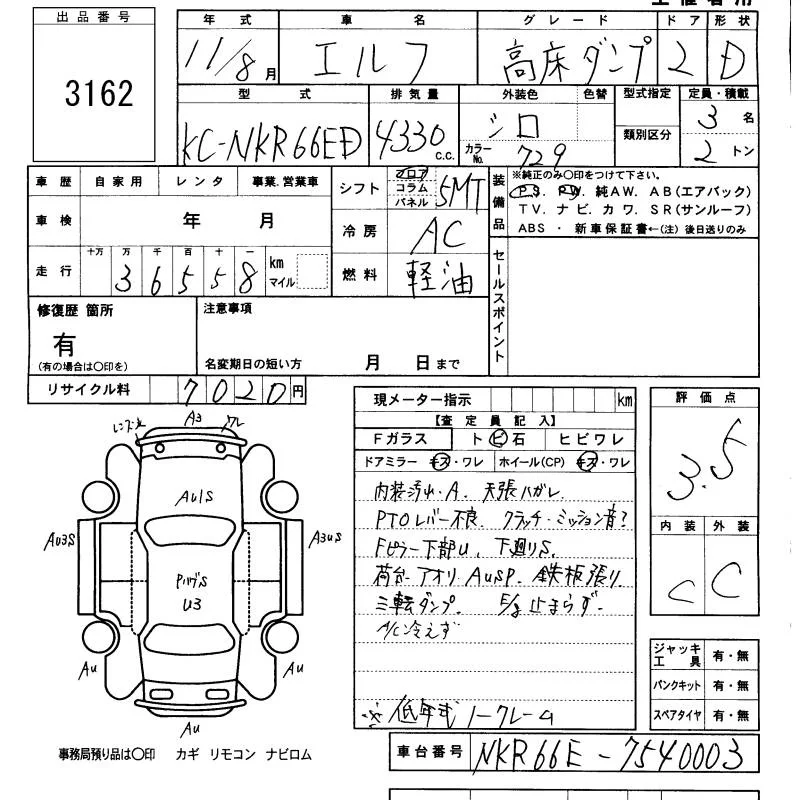 出品番号
3162
年式 車名 グレード ドア 形状
11/8月 エルフ 高床ダンプ 2 D
型式 排気量 外装色 色替 型式指定 定員・積載
KC-NKR66ED 4330c.c. シロ 類別区分 3名
カラーNo. 729 2トン
車歴 自家用 レンタ 事業.営業車
車検 年 月
走行 十万 万 千 百 十 一
36558 km マイル
シフト フロア コラム パネル 5MT
冷房 AC
燃料 軽油
装備品
※純正のみ〇印をつけて下さい。
PS. PW. 純AW. AB(エアバック)
TV. ナビ. カワ. SR(サンルーフ)
ABS ・ 新車保証書←(注) 後日送りのみ
セールスポイント
修復歴 箇所
有
(有の場合は〇印を)
注意事項
名変期日の短い方 月 日まで
リサイクル料 7020円
現メーター指示 km
【査定員記入】
Fガラス トビ石 ヒビワレ
ドアミラー キズ・ワレ ホイール(CP) キズ・ワレ
内装汚れ・A. 天張ハガレ
PTOレバー不良. クラッチ・ミッション音?
Fピラー下部U. 下廻りS.
荷台アオリ AUSP. 鉄板張り
三転ダンプ. E/g止まらず.
A/C冷えず
※低年式 ノークレーム
評価点
3.5
内装 外装
C C
ジャッキ工具 有・無
パンクキット 有・無
スペアタイヤ 有・無
A3
ワレ
AU1S
AU3S
A3US
U3
AU
AU
AU
事務局預り品は〇印 カギ リモコン ナビロム
車台番号 NKR66E-7540003